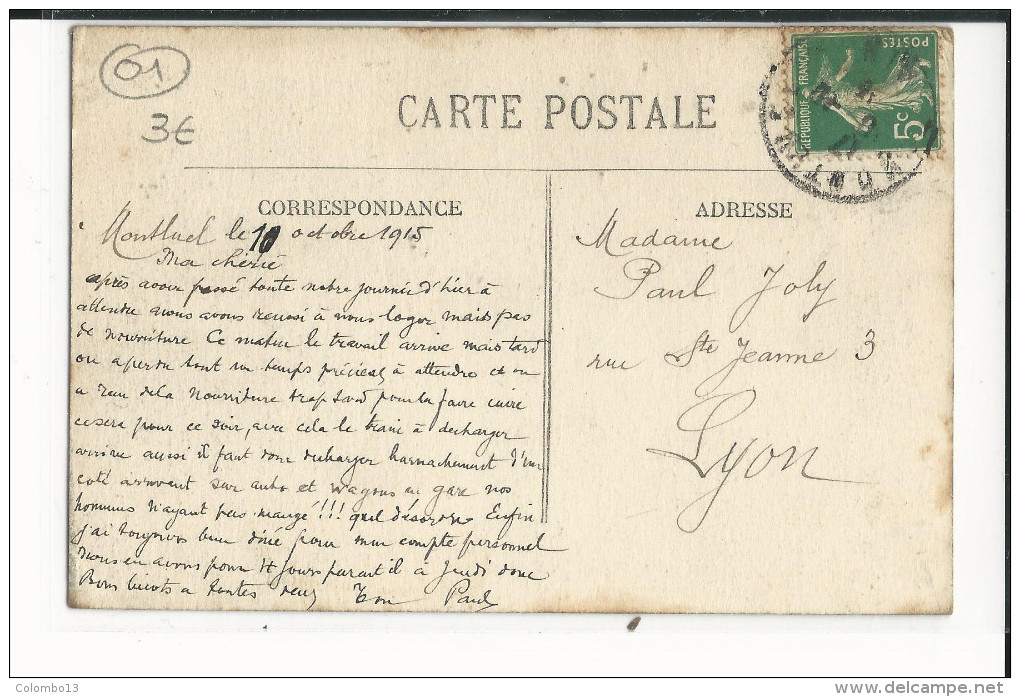 01
3€
CARTE POSTALE
RÉPUBLIQUE FRANÇAISE
POSTES
5c
CORRESPONDANCE
ADRESSE
Montluel le 10 octobre 1915
Ma chérie
après avoir passé toute notre journée d'hier à
attendre nous avons reussi à nous loger mais pas
de nourriture Ce matin le travail arrive mais tard
on a perdu tout un temps précieux à attendre et on
a reçu de la nourriture trop tard pour la faire cuire
ce sera pour ce soir, avec cela le train à decharger
arrive aussi il faut donc decharger harnachement d'un
coté arrivent sur auto et wagons en gare nos
hommes n'ayant pas mangé!!! quel désordre Enfin
j'ai toujours bien diné pour mon compte personnel
nous en avons pour 4 jours parait il à Jeudi donc
Bons bécots a toutes deux Ton Paul
Madame
Paul Joly
rue Ste Jeanne 3
Lyon
Colombo13
www.delcampe.net